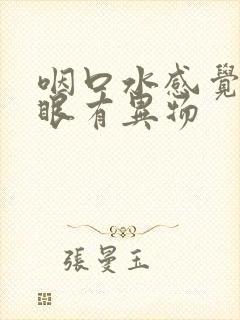 咽口水感覺
眼有異物
張曼玉